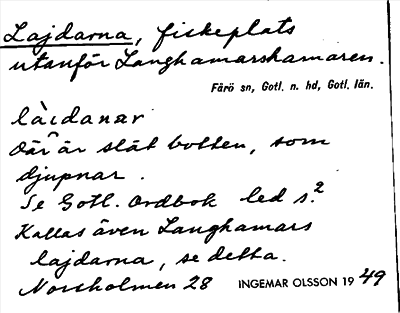 Lajdarna, fiskeplats
utanför Langhamarshamaren.
Fårö sn, Gotl. n. hd, Gotl. län.
làidanar
där är slät botten, som
djupnar.
Se Gotl. Ordbok led s.2
Kallas även Langhamars
lajdarna, se detta.
Norsholmen 28 INGEMAR OLSSON 1949